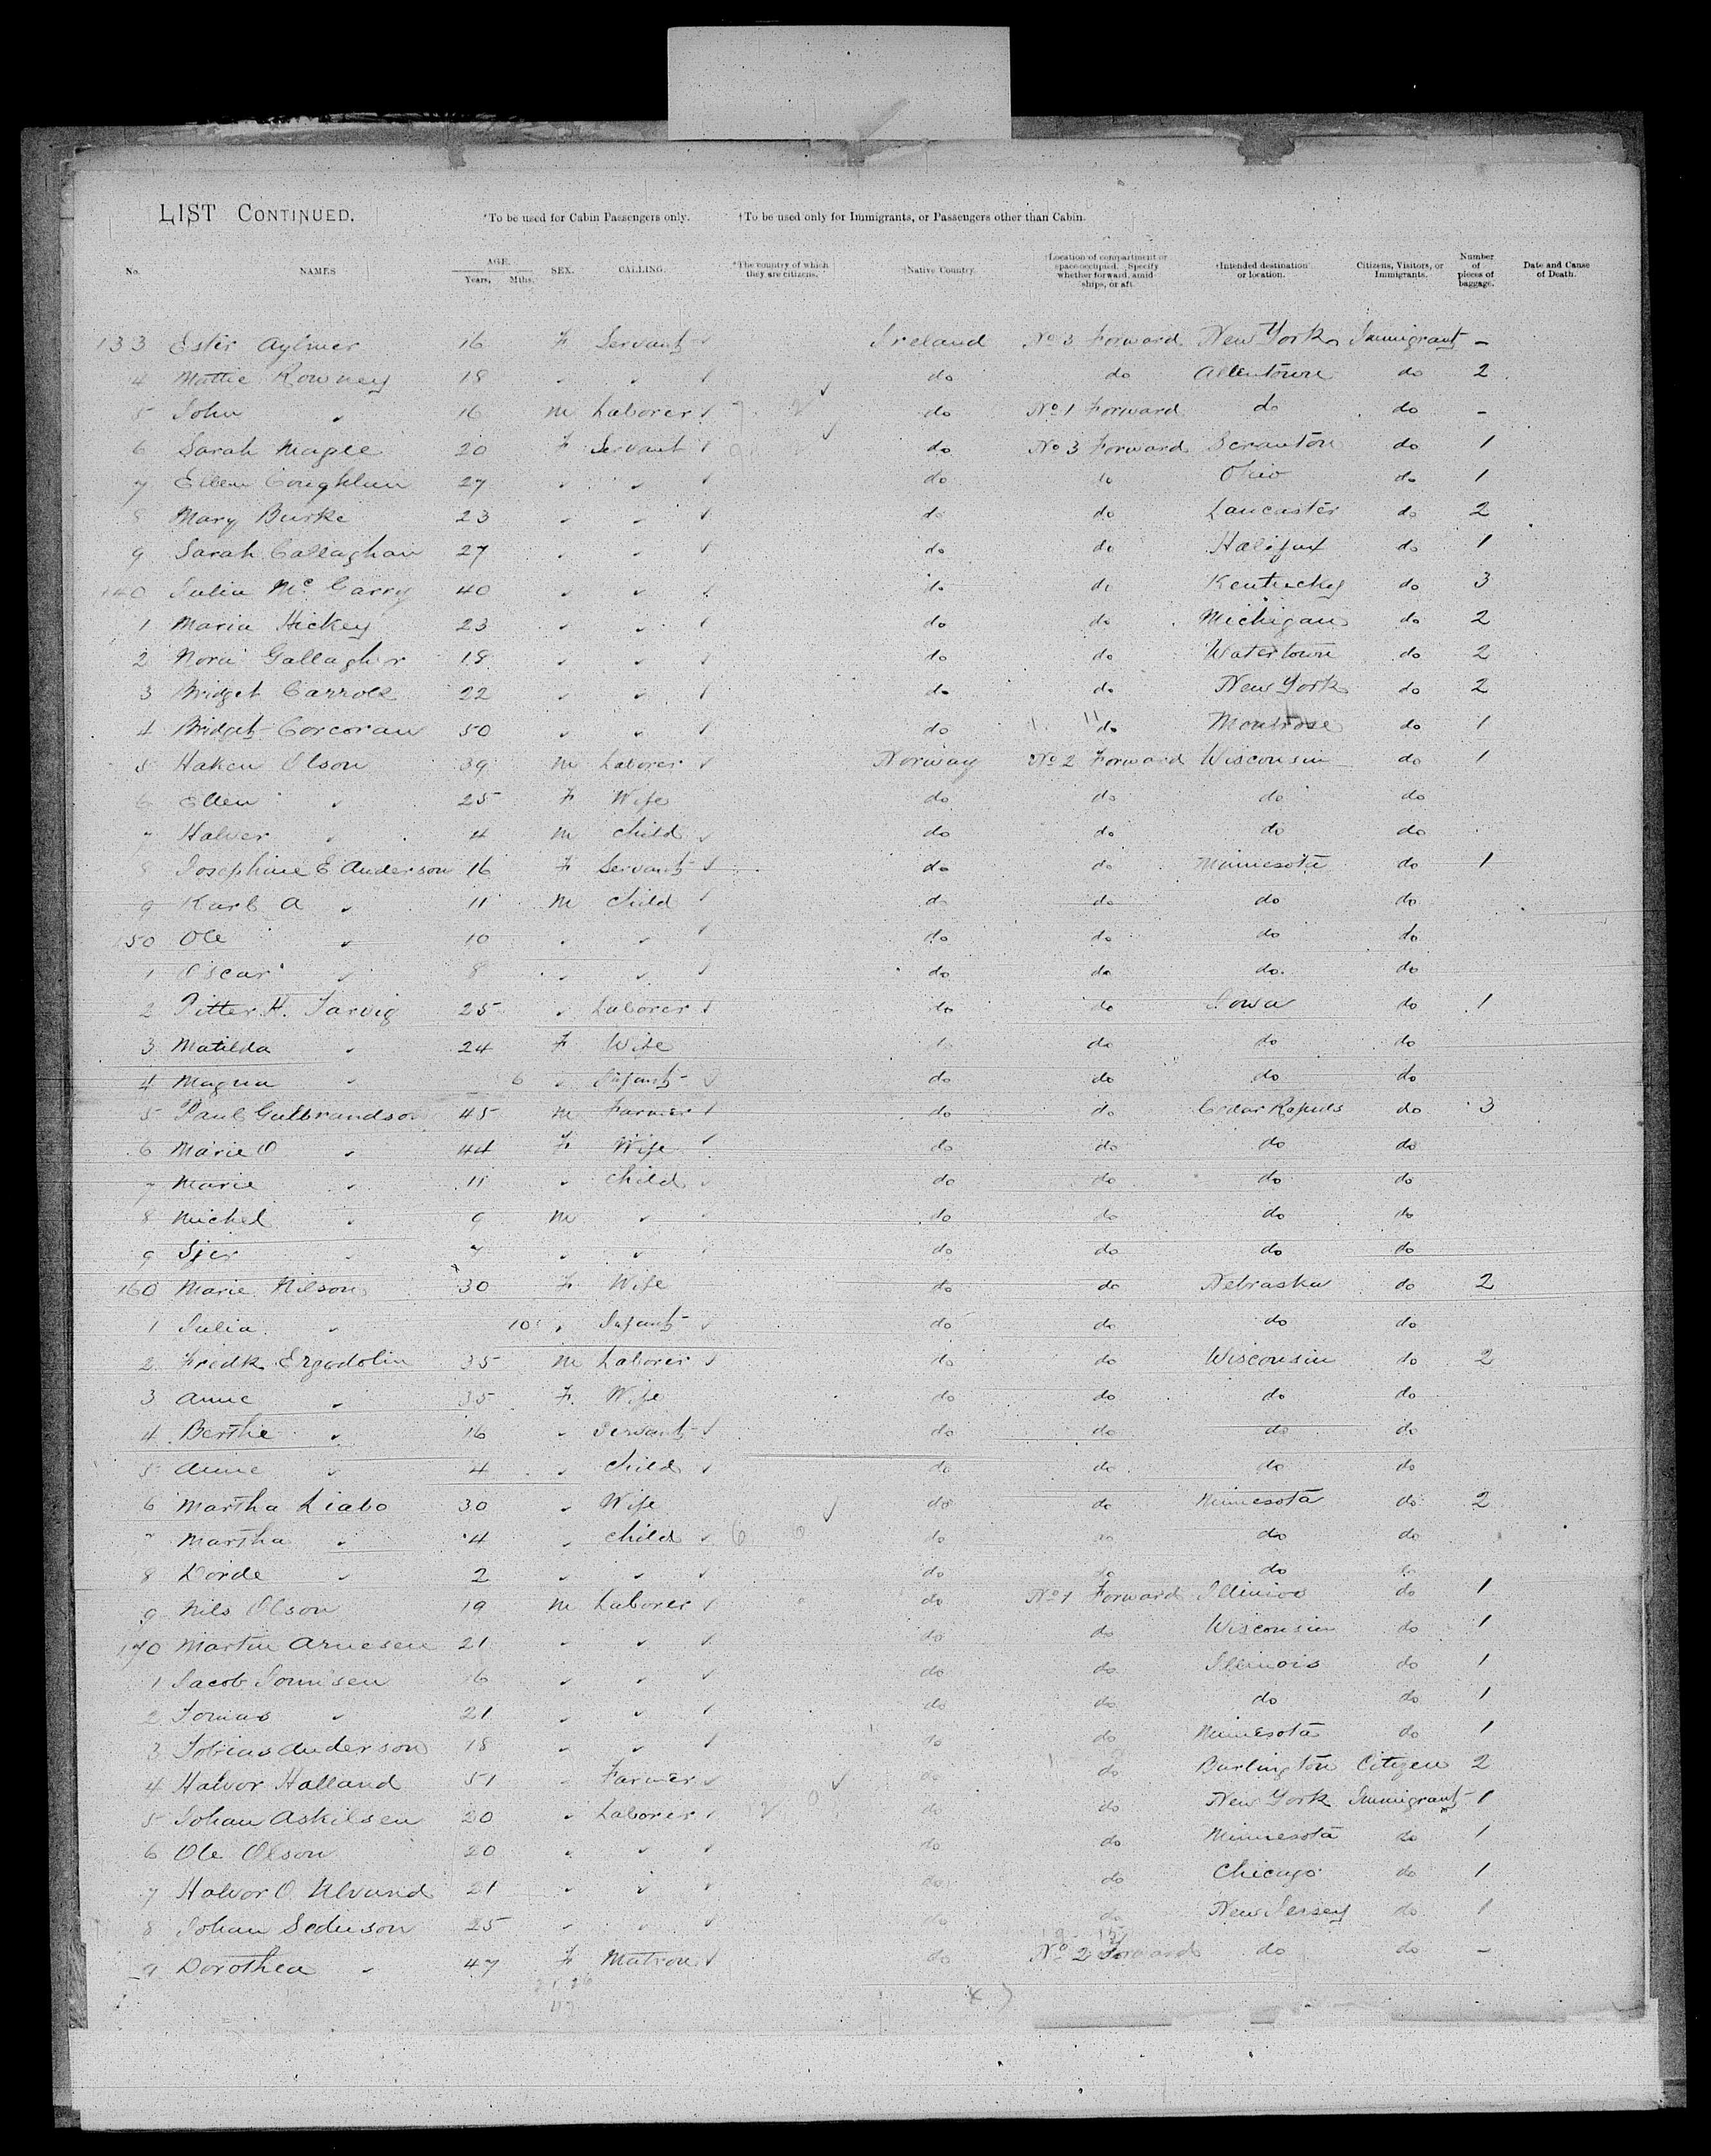 LIST CONTINUED. *To be used for Cabin Passengers only. †To be used only for Immigrants, or Passengers other than Cabin.
No. NAMES AGE. Years, Mths. SEX. CALLING. *The country of which they are citizens. †Native Country. †Location of compartment or space occupied. Specify whether forward, amid ships, or aft. †Intended destination or location. Citizens, Visitors, or Immigrants. Number of pieces of baggage. Date and Cause of Death.
133 Ester Aylmer 16 F Servant Ireland No 3 Forward New York Immigrant -
4 Mattie Rowney 18 " " do do Allentown do 2
5 John " 16 M Laborer do No 1 Forward do do -
6 Sarah Magee 20 F Servant do No 3 Forward Scranton do 1
7 Ellen Coughlan 27 " " do do Ohio do 1
8 Mary Burke 23 " " do do Lancaster do 2
9 Sarah Callaghan 27 " " do do Halifax do 1
140 Julia McGarry 40 " " do do Kentucky do 3
1 Maria Hickey 23 " " do do Michigan do 2
2 Nora Gallagher 18 " " do do Watertown do 2
3 Bridget Carroll 22 " " do do New York do 2
4 Bridget Corcoran 50 " " do do Montrose do 1
5 Haken Olson 39 M Laborer Norway No 2 Forward Wisconsin do 1
6 Ellen " 25 F Wife do do do do
7 Halver " 4 M Child do do do do
8 Josephine E Anderson 16 F Servant do do Minnesota do 1
9 Karl A " 11 M Child do do do do
150 Ole " 10 " " do do do do
1 Oscar " 8 " " do do do do
2 Pitter H. Tarvig 25 " Laborer do do Iowa do 1
3 Matilda " 24 F Wife do do do do
4 Magna " 6 " Infant do do do do
5 Paul Gulbrandson 45 M Farmer do do Cedar Rapids do 3
6 Marie O " 44 F Wife do do do do
7 Marie " 11 " Child do do do do
8 Michel " 9 M " do do do do
9 Sjer " 7 " " do do do do
160 Marie Nilson 30 F Wife do do Nebraska do 2
1 Julia " 10 " Infant do do do do
2 Fredk Ergodolin 35 M Laborer do do Wisconsin do 2
3 Anne " 35 F Wife do do do do
4 Berthe " 16 " Servant do do do do
5 Anne " 4 " Child do do do do
6 Martha Liabo 30 " Wife do do Minnesota do 2
7 Martha " 4 " Child do do do do
8 Dorde " 2 " " do do do do
9 Nils Olson 19 M Laborer do No 1 Forward Illinios do 1
170 Martin Arnesen 21 " " do do Wisconsin do 1
1 Jacob Tonnisen 16 " " do do Illinois do 1
2 Tomas " 21 " " do do do do 1
3 Tobias Anderson 18 " " do do Minnesota do 1
4 Halvor Halland 51 " Farmer do do Burlington Citizen 2
5 Johan Askilsen 20 " Laborer do do New York Immigrant 1
6 Ole Olson 20 " " do do Minnesota do 1
7 Halvor O. Ulvund 21 " " do do Chicago do 1
8 Johan Seduson 25 " " do do New Jersey do 1
9 Dorothea " 47 F Matron do No 2 Forward do do -